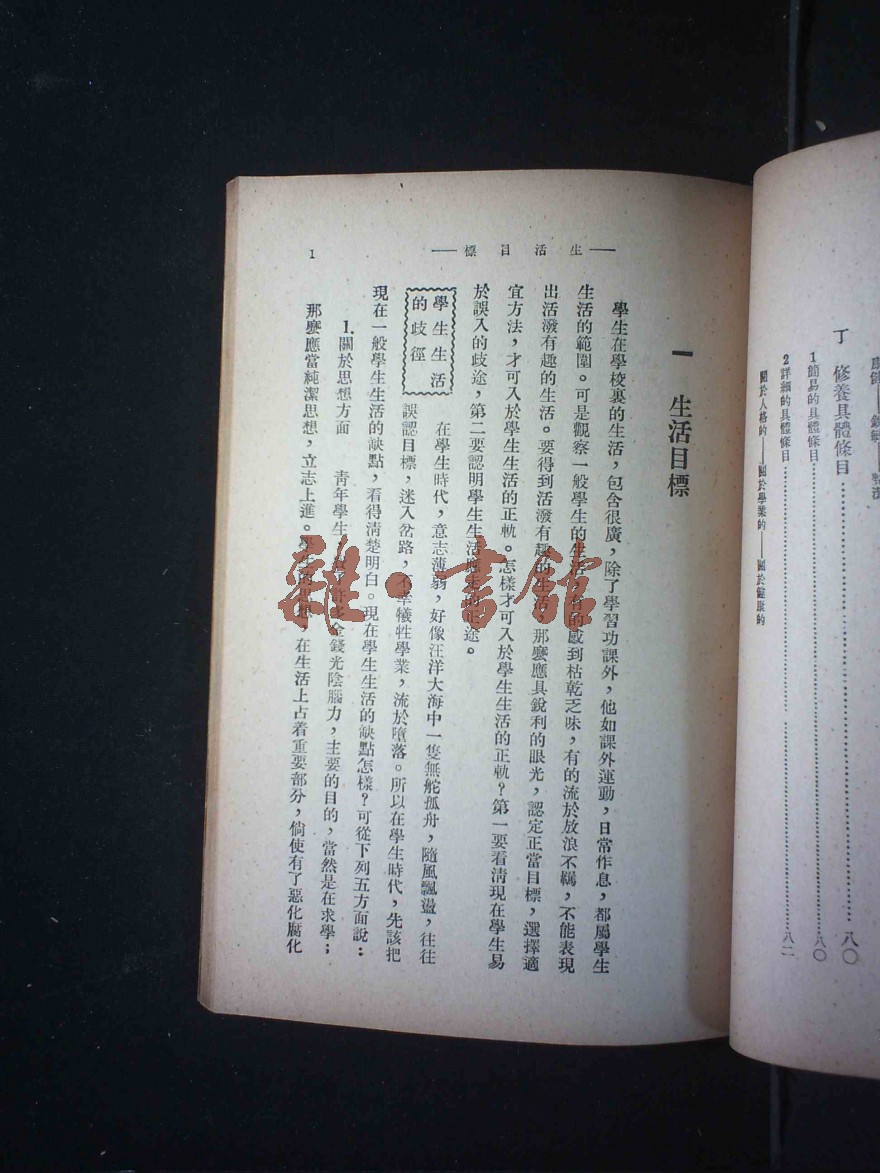 康健——銳敏——
丁 修養具體條目……八〇
1 簡易的具體條目……八〇
2 詳細的具體條目……八二
關於人格的——關於學業的——關於健康的
——生活目標——
1
一 生活目標
學生在學校裏的生活，包含很廣，除了學習功課外，他如課外運動，日常作息，都屬學生
生活的範圍。可是觀察一般學生的生活，有的感到枯乾乏味，有的流於放浪不羈，不能表現
出活潑有趣的生活。要得到活潑有趣的生活，那麼應具銳利的眼光，認定正當目標，選擇適
宜方法，才可入於學生生活的正軌。怎樣才可入於學生生活的正軌？第一要看清現在學生易
於誤入的歧途，第二要認明學生生活應走的正途。
學生生活
的歧徑
在學生時代，意志薄弱，好像汪洋大海中一隻無舵孤舟，隨風飄盪，往往
誤認目標，迷入岔路，不幸犧牲學業，流於墮落。所以在學生時代，先該把
現在一般學生生活的缺點，看得清楚明白。現在學生生活的缺點怎樣？可從下列五方面說：
1.關於思想方面 青年學生，費了許多金錢光陰腦力，主要的目的，當然是在求學；
那麼應當純潔思想，立志上進。學生的思想，在生活上占着重要部分，倘使有了惡化腐化
雜·書館